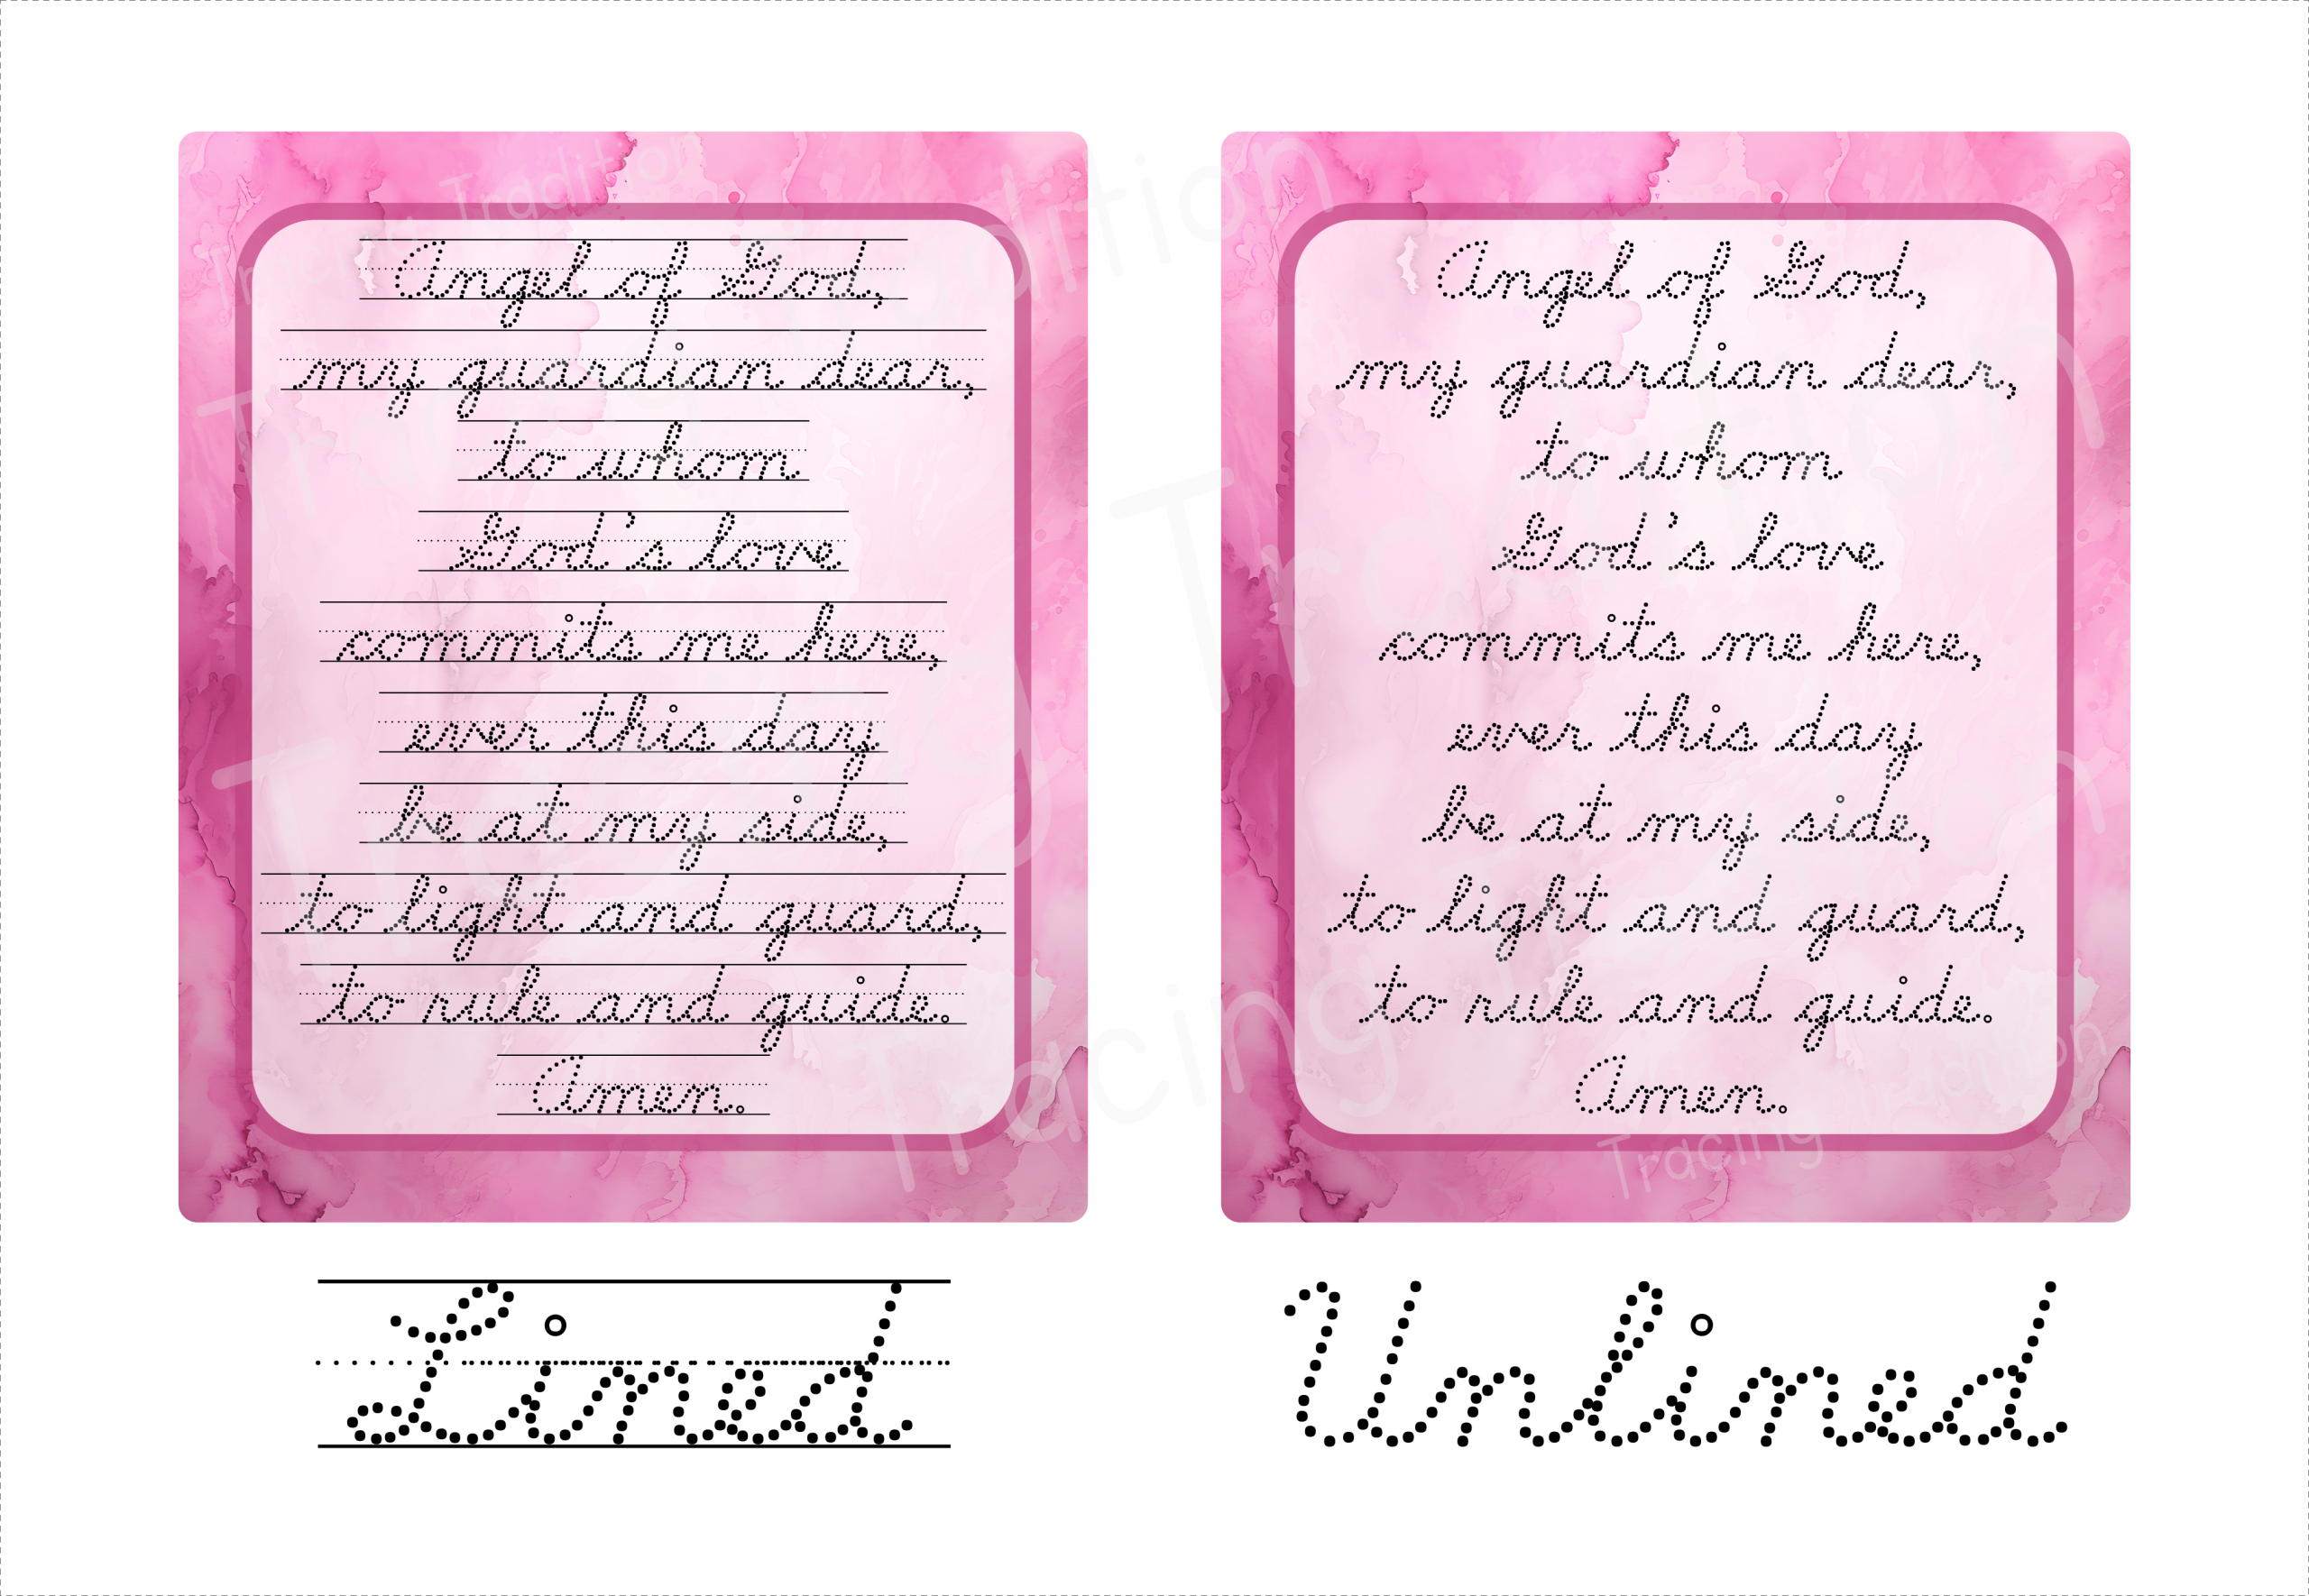 Angel of God,
my guardian dear,
to whom
God's love
commits me here,
ever this day
be at my side,
to light and guard,
to rule and guide.
Amen.
Lined
Angel of God,
my guardian dear,
to whom
God's love
commits me here,
ever this day
be at my side,
to light and guard,
to rule and guide.
Amen.
Unlined
Tracing Tradition
Tracing Tradition
Tracing Tradition
Tracing Tradition